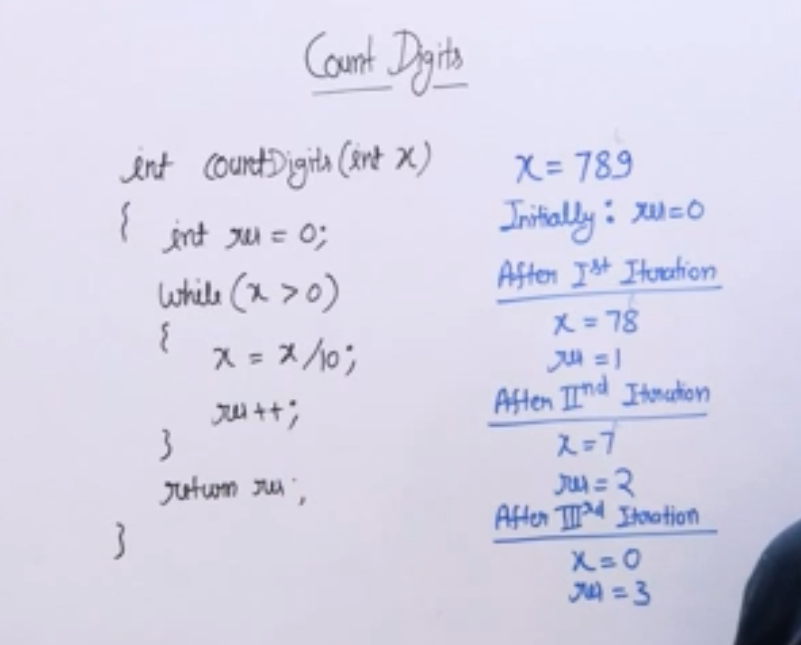 Count Digits
int countDigits(int x)
{
int res = 0;
while (x > 0)
{
x = x/10;
res++;
}
return res;
}
x = 789
Initially: res=0
After Ist Iteration
x = 78
res = 1
After IInd Iteration
x = 7
res = 2
After IIIrd Iteration
x = 0
res = 3